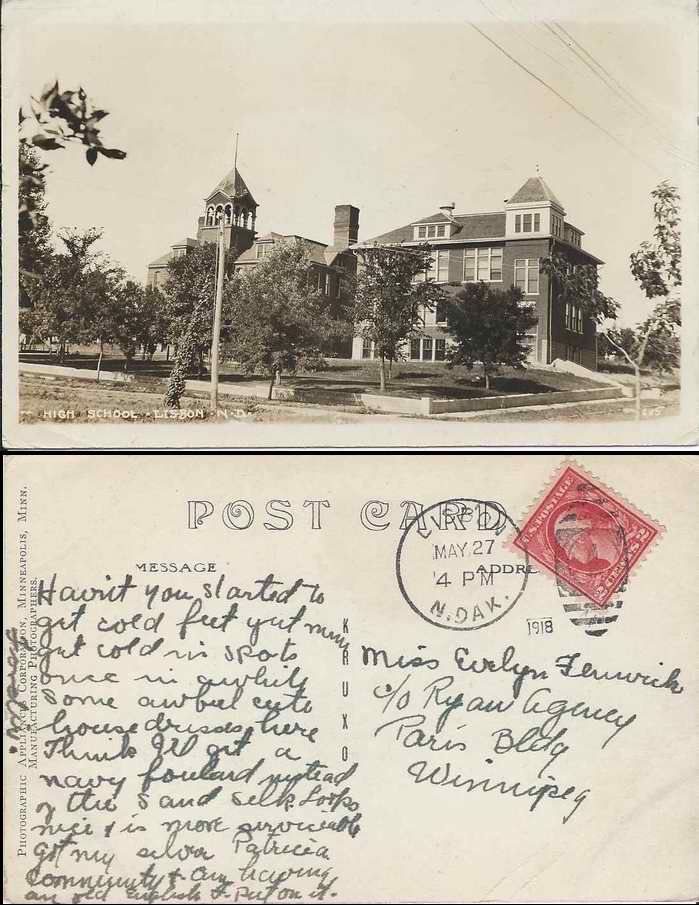 HIGH SCHOOL · LISBON · N·D·
POST CARD
MESSAGE
ADDRE
LISBON
MAY 27
4 PM
N. DAK.
1918
U.S. POSTAGE
2 CENTS 2
PHOTOGRAPHIC APPLIANCES CORPORATION, MINNEAPOLIS, MINN.
MANUFACTURING PHOTOGRAPHERS.
KRUXO
Havn't you started to
get cold feet yet mine
get cold in spots
once in awhile
Some awful cute
housedresses here
Think I'll get a
navy foulard instead
of the sand silk Looks
nice & is more serviceable
Got my silver Patricia
Community & am having
an old English F put on it.
Miss Evelyn Fenwick
c/o Ryan Agency
Paris Bldg
Winnipeg